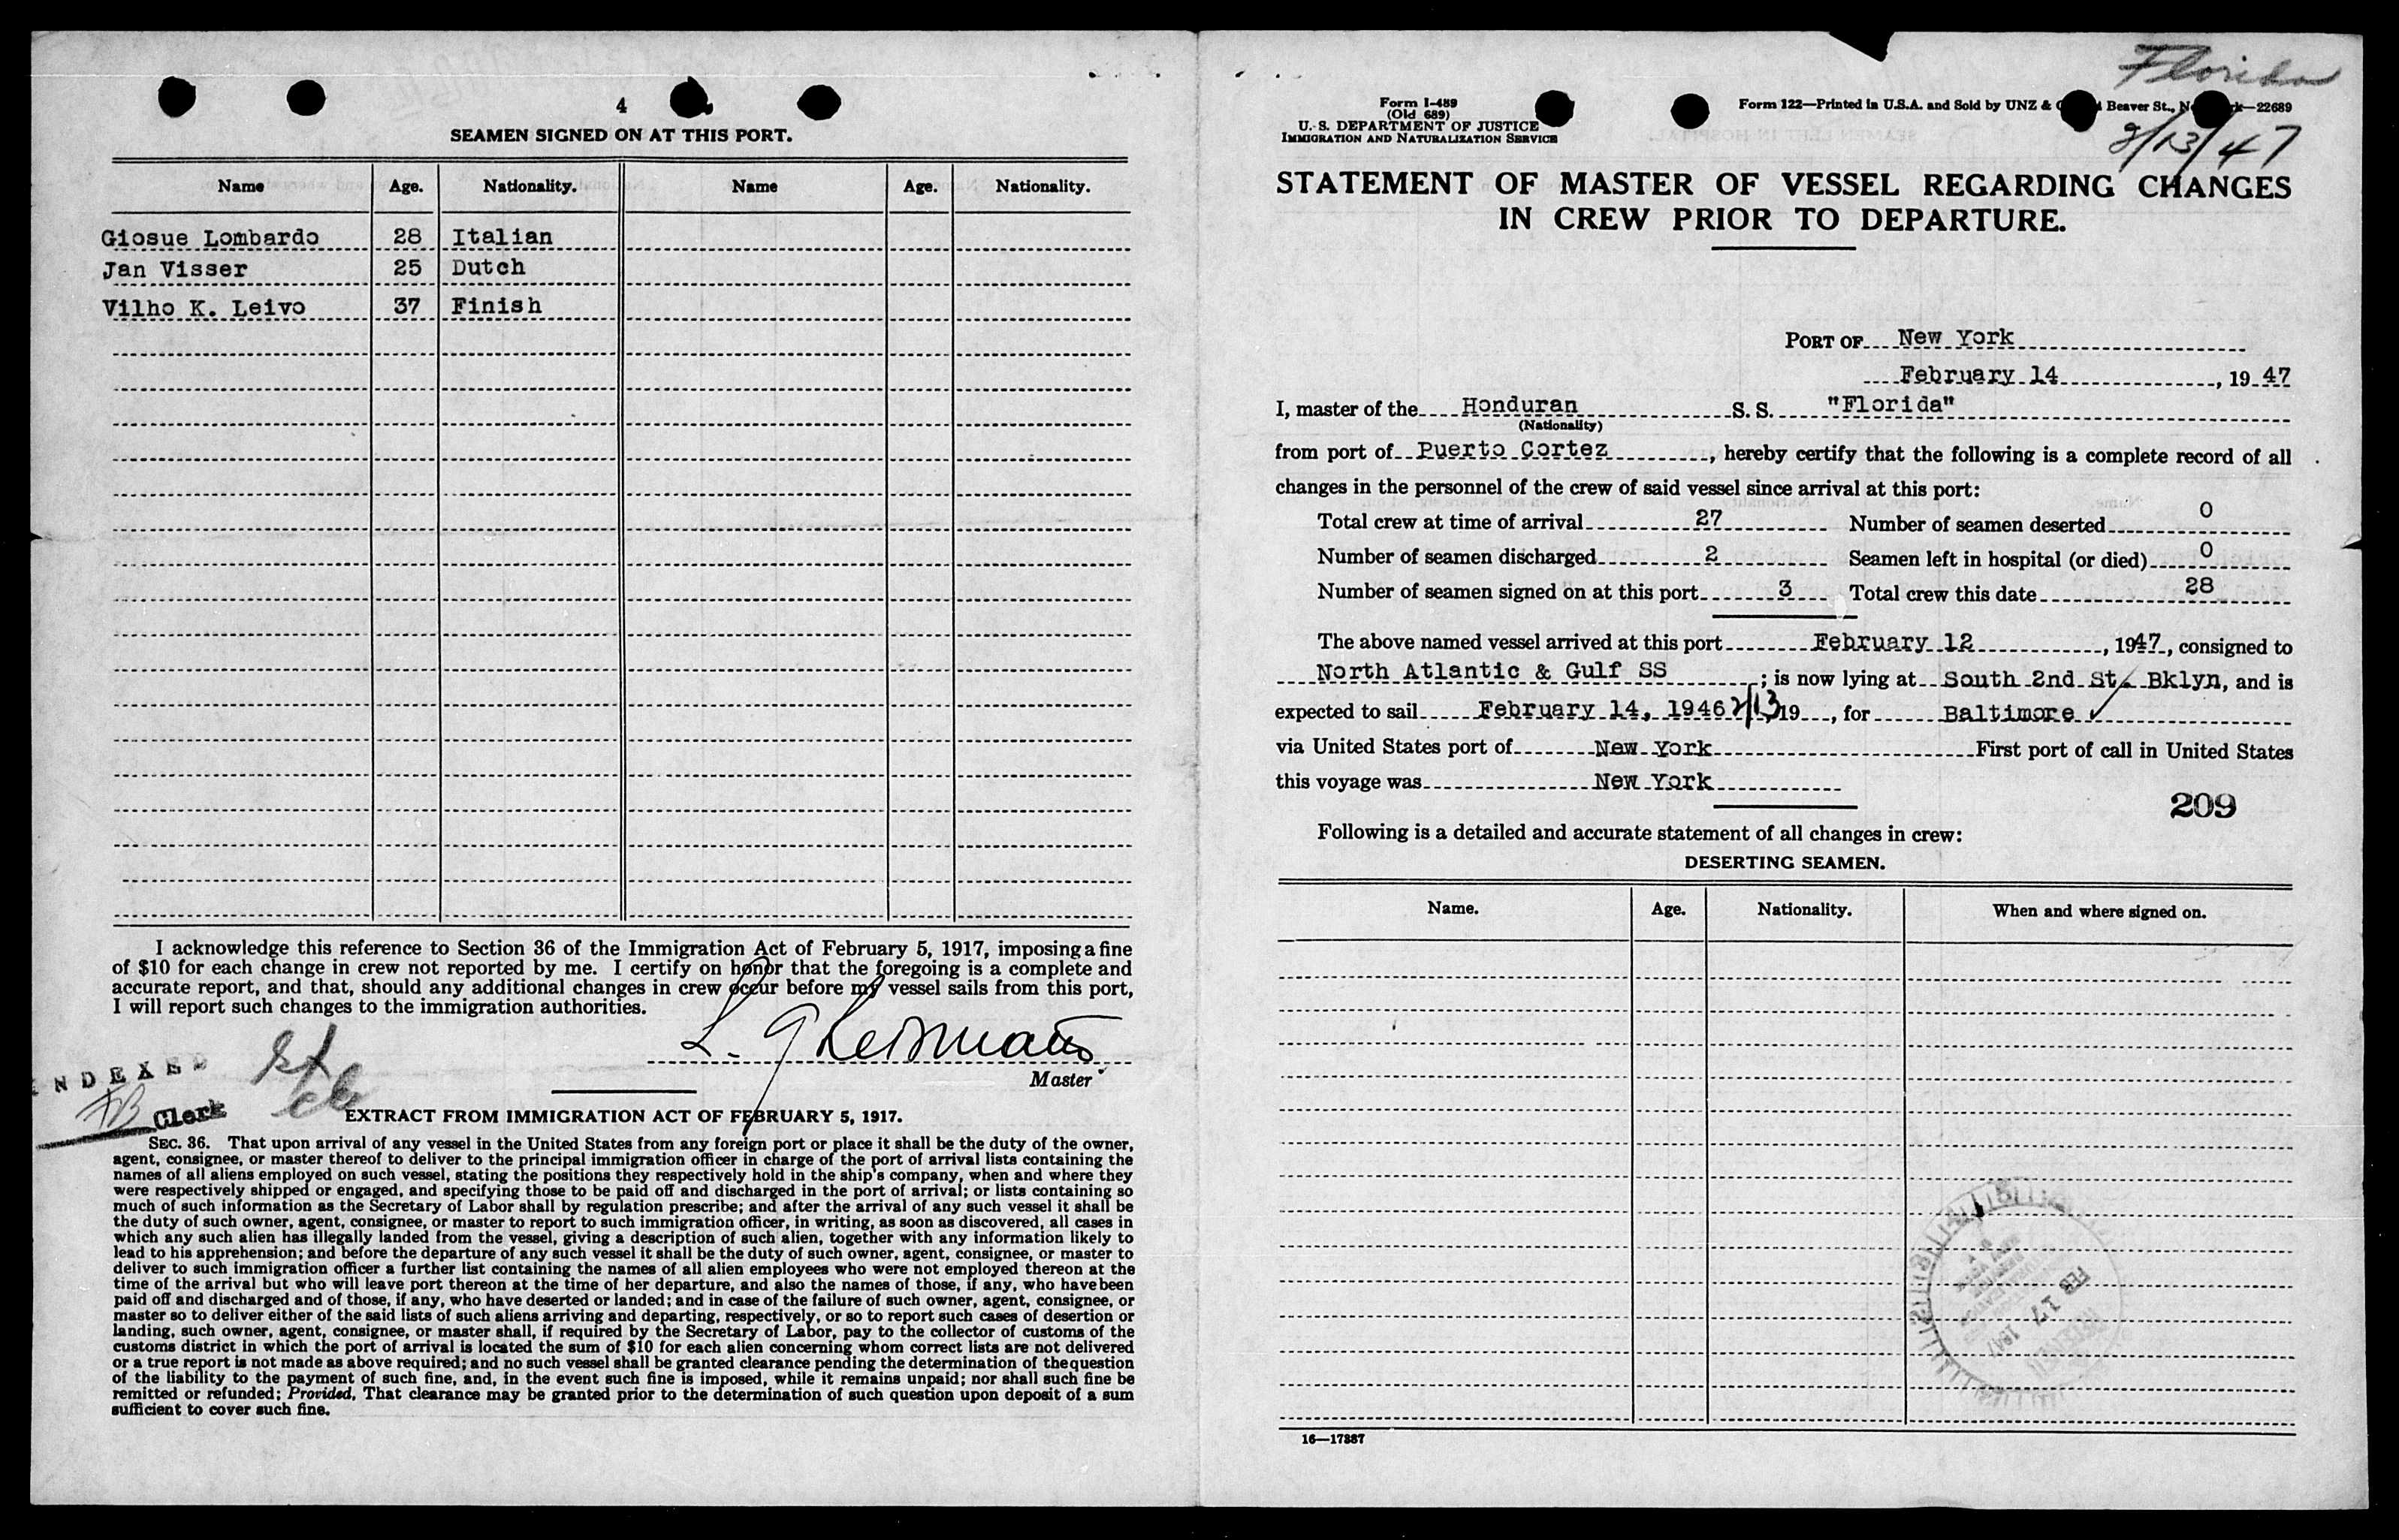 4
SEAMEN SIGNED ON AT THIS PORT.
Name Age. Nationality. Name Age. Nationality.
Giosue Lombardo 28 Italian
Jan Visser 25 Dutch
Vilho K. Leivo 37 Finish
I acknowledge this reference to Section 36 of the Immigration Act of February 5, 1917, imposing a fine
of $10 for each change in crew not reported by me. I certify on honor that the foregoing is a complete and
accurate report, and that, should any additional changes in crew occur before my vessel sails from this port,
I will report such changes to the immigration authorities.
Master
INDEXED
Clerk
EXTRACT FROM IMMIGRATION ACT OF FEBRUARY 5, 1917.
SEC. 36. That upon arrival of any vessel in the United States from any foreign port or place it shall be the duty of the owner,
agent, consignee, or master thereof to deliver to the principal immigration officer in charge of the port of arrival lists containing the
names of all aliens employed on such vessel, stating the positions they respectively hold in the ship's company, when and where they
were respectively shipped or engaged, and specifying those to be paid off and discharged in the port of arrival; or lists containing so
much of such information as the Secretary of Labor shall by regulation prescribe; and after the arrival of any such vessel it shall be
the duty of such owner, agent, consignee, or master to report to such immigration officer, in writing, as soon as discovered, all cases in
which any such alien has illegally landed from the vessel, giving a description of such alien, together with any information likely to
lead to his apprehension; and before the departure of any such vessel it shall be the duty of such owner, agent, consignee, or master to
deliver to such immigration officer a further list containing the names of all alien employees who were not employed thereon at the
time of the arrival but who will leave port thereon at the time of her departure, and also the names of those, if any, who have been
paid off and discharged and of those, if any, who have deserted or landed; and in case of the failure of such owner, agent, consignee, or
master so to deliver either of the said lists of such aliens arriving and departing, respectively, or so to report such cases of desertion or
landing, such owner, agent, consignee, or master shall, if required by the Secretary of Labor, pay to the collector of customs of the
customs district in which the port of arrival is located the sum of $10 for each alien concerning whom correct lists are not delivered
or a true report is not made as above required; and no such vessel shall be granted clearance pending the determination of the question
of the liability to the payment of such fine, and, in the event such fine is imposed, while it remains unpaid; nor shall such fine be
remitted or refunded; Provided, That clearance may be granted prior to the determination of such question upon deposit of a sum
sufficient to cover such fine.
Florida
Form I-489
(Old 689)
U. S. DEPARTMENT OF JUSTICE
IMMIGRATION AND NATURALIZATION SERVICE
Form 122—Printed in U.S.A. and Sold by UNZ & Beaver St., —22689
2/13/47
STATEMENT OF MASTER OF VESSEL REGARDING CHANGES
IN CREW PRIOR TO DEPARTURE.
PORT OF New York
February 14, 1947
I, master of the Honduran S. S. "Florida"
(Nationality)
from port of Puerto Cortez, hereby certify that the following is a complete record of all
changes in the personnel of the crew of said vessel since arrival at this port:
Total crew at time of arrival 27 Number of seamen deserted 0
Number of seamen discharged 2 Seamen left in hospital (or died) 0
Number of seamen signed on at this port 3 Total crew this date 28
The above named vessel arrived at this port February 12, 1947, consigned to
North Atlantic & Gulf SS; is now lying at South 2nd St. Bklyn, and is
expected to sail February 14, 1946 2/13, 19, for Baltimore
via United States port of New York First port of call in United States
this voyage was New York
209
Following is a detailed and accurate statement of all changes in crew:
DESERTING SEAMEN.
Name. Age. Nationality. When and where signed on.
FEB 17 1947
16—17887